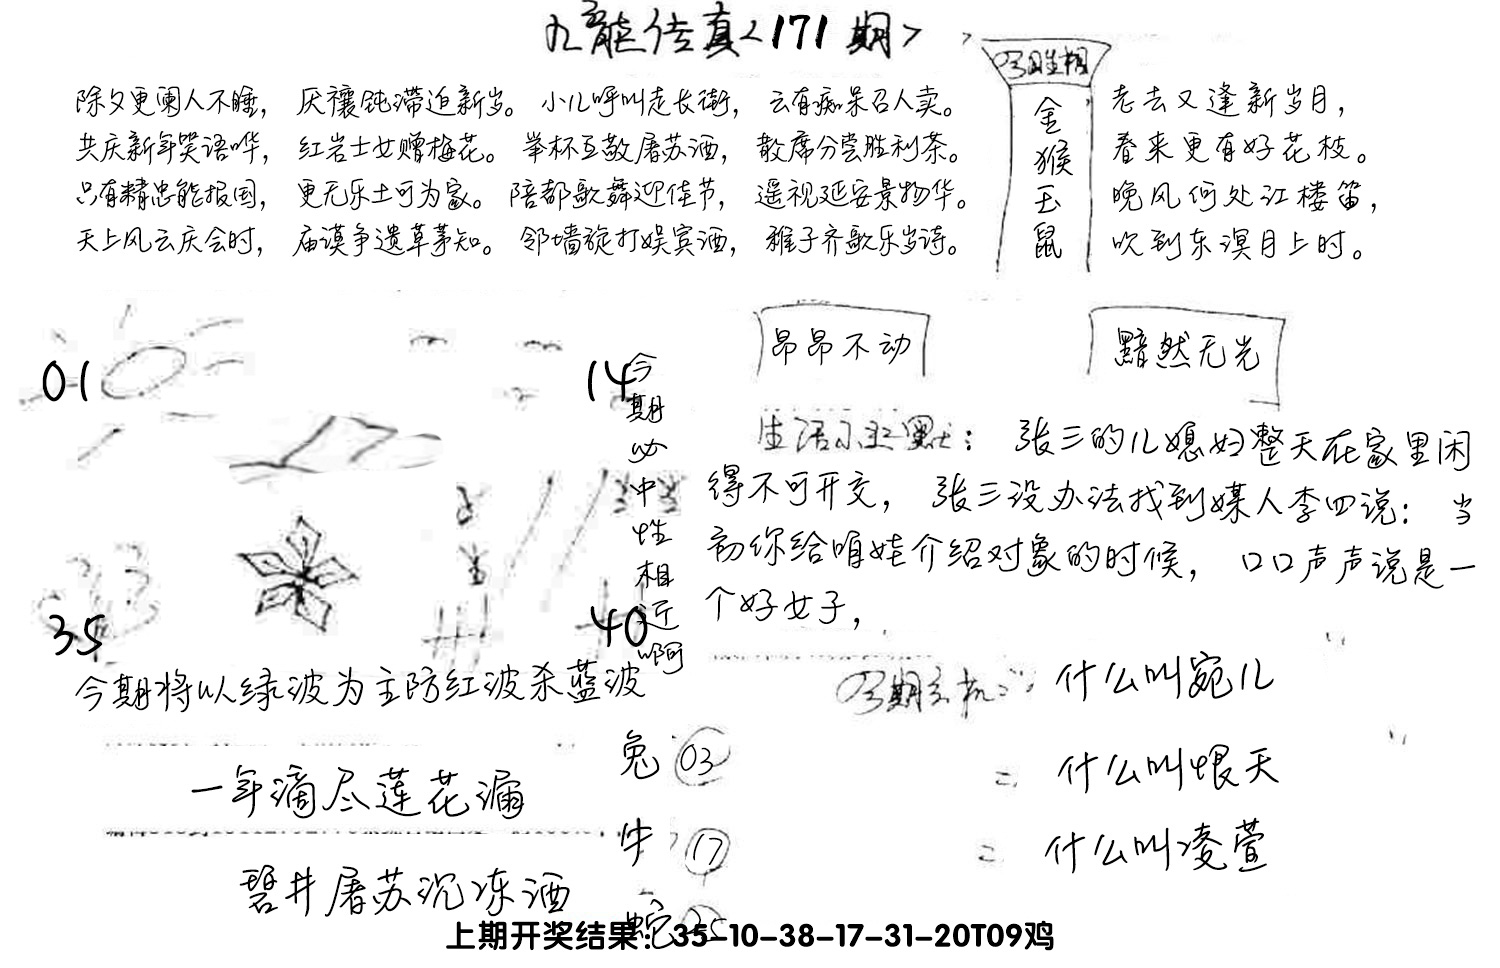 九龍传真<171期>
除夕更阑人不睡， 厌禳钝滞迫新岁。 小儿呼叫走长街， 云有痴呆召人卖。
共庆新年笑语哗， 红岩士女赠梅花。 举杯互敬屠苏酒， 散席分尝胜利茶。
只有精忠能报国， 更无乐土可为家。 陪都歌舞迎佳节， 遥视延安景物华。
天上风云庆会时， 庙谟争遗草茅知。 邻墙旋打娱宾酒， 稚子齐歌乐岁诗。
金猴玉鼠
老去又逢新岁月，
春来更有好花枝。
晚风何处江楼笛，
吹到东溟月上时。
昂昂不动
黯然无光
01
14
35
40
今期必中性相近啊
生活幽默： 张三的儿媳妇整天在家里闲
得不可开交， 张三没办法找到媒人李四说： 当
初你给咱娃介绍对象的时候， 口口声声说是一
个好女子，
今期将以绿波为主防红波杀蓝波
今期玄机： 什么叫宛儿
什么叫恨天
什么叫凌萱
一年滴尽莲花漏
碧井屠苏沉冻酒
兔 03
牛 17
蛇 25
上期开奖结果：35-10-38-17-31-20T09鸡